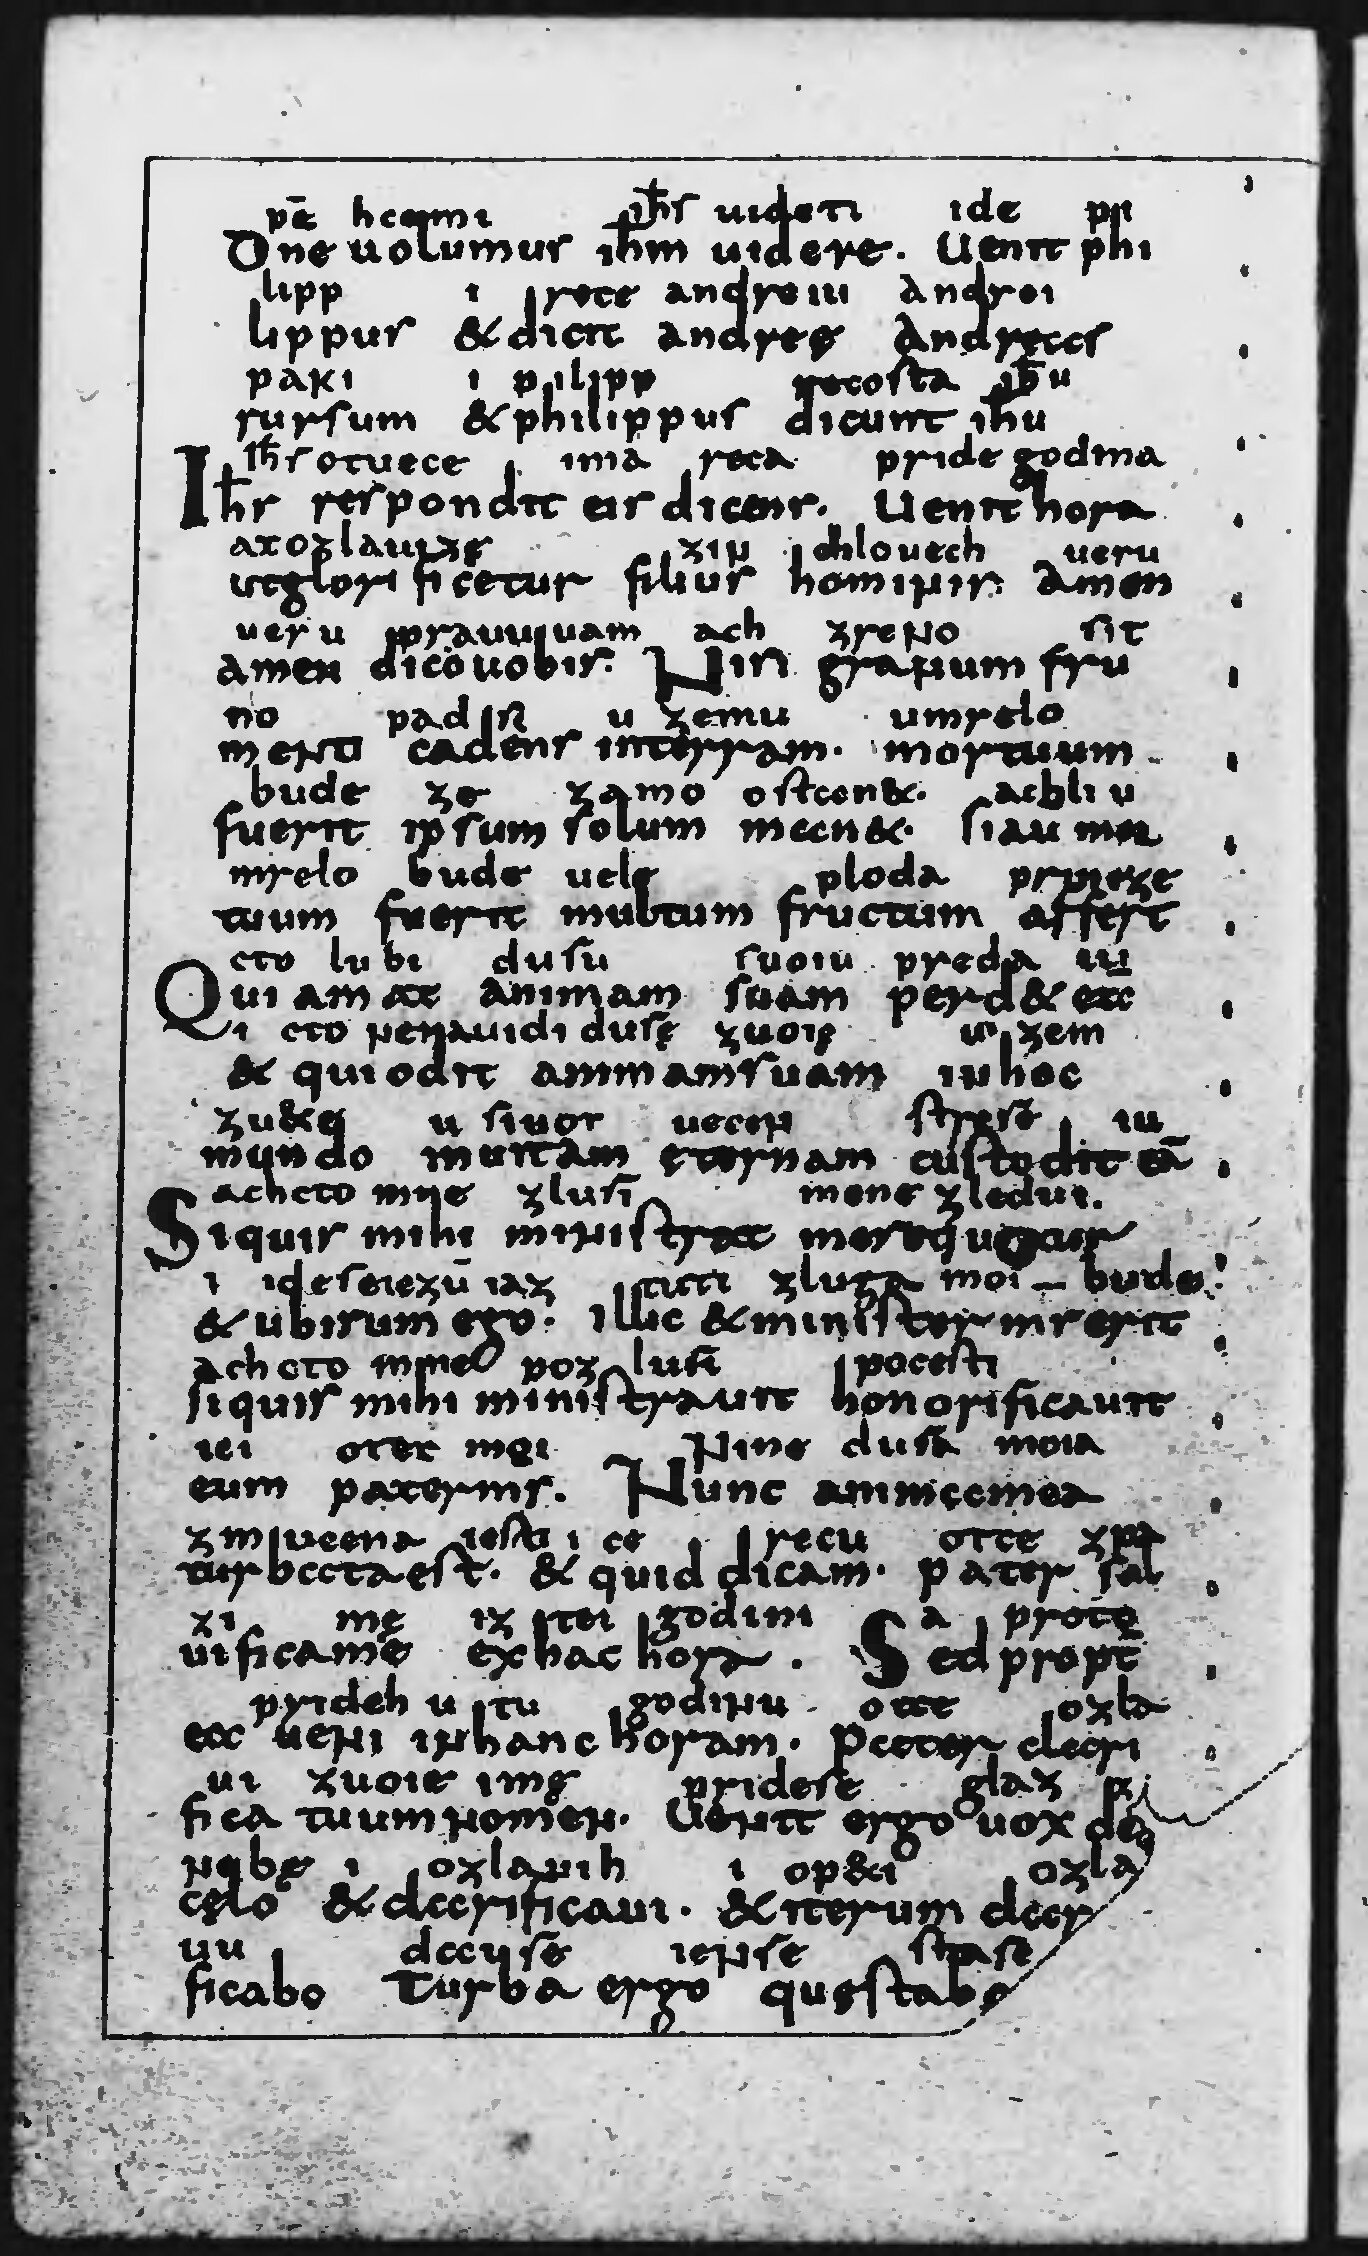 pē hcemi ihſ uideti ide pii
Dne uolumuſ ihm uidere. Uenit phi
lipp i rece andreiu andrei
lippuſ & dicit andreę Andreccſ
paki i pilipp recoſta ihu
rurſum & philippuſ dicunt ihu
Ihſ otuece ima reca pride godina
Ihſ reſpondit eiſ dicenſ. Uenit hora
azozlauizę zin chlouech ueru
utglorificetur filiuſ hominiſ. Amen
ueru prauuiuam ach zreno sit
amen dico uobiſ. Niſi granum fru
no padſi u zemu umrelo
menti cadenſ interram. mortuum
bude ze zamo oſtcen&. achli u
fuerit ipſum ſolum mccn&. ſiau mor
mrelo bude uele ploda prineze
tuum fuerit multum fructum affert
cto lubi duſu ſuoiu preda iu
Qui amat animam ſuam perd& eā
i cto nenauidi duſę zuoię uſ zem
& quiodit animamſuam inhoc
zu&e u ſiuot uecen ſtreſē iu
mundo inuitam ęternam cuſtodit eā
achcto mne zluſi mene zledui.
Siquiſ mihi miniſtrat meſequatur
i ideſeiezū iaz tuti zluga moi bude
& ubiſum ego. illic & miniſter mſ erit
achcto mne poz luſi poceſti
ſiquiſ mihi miniſtrauit honorificauit
iei otec moi Nine duſa moia
eum patermſ. Nunc animcemea
zmucena ieſti i ce recu otce zpa
turbcctaeſt. & quid dicam. pater ſal
zi mę iz tei godini a prote
uificame ex hac hora. Sed propt
prideh u tu godinu otce ozla
ea ueni inhanc horam. Pccter clccri
ui zuoie imę prideſe glaz ſz
fica tuumnomen. Uenit ergo uox de
nebę i ozlanih i op&i ozla
cęlo & clccrificaui. & iterum clccr
uu ienſe ſtaſe
ficabo Turba ergo quęſtabo